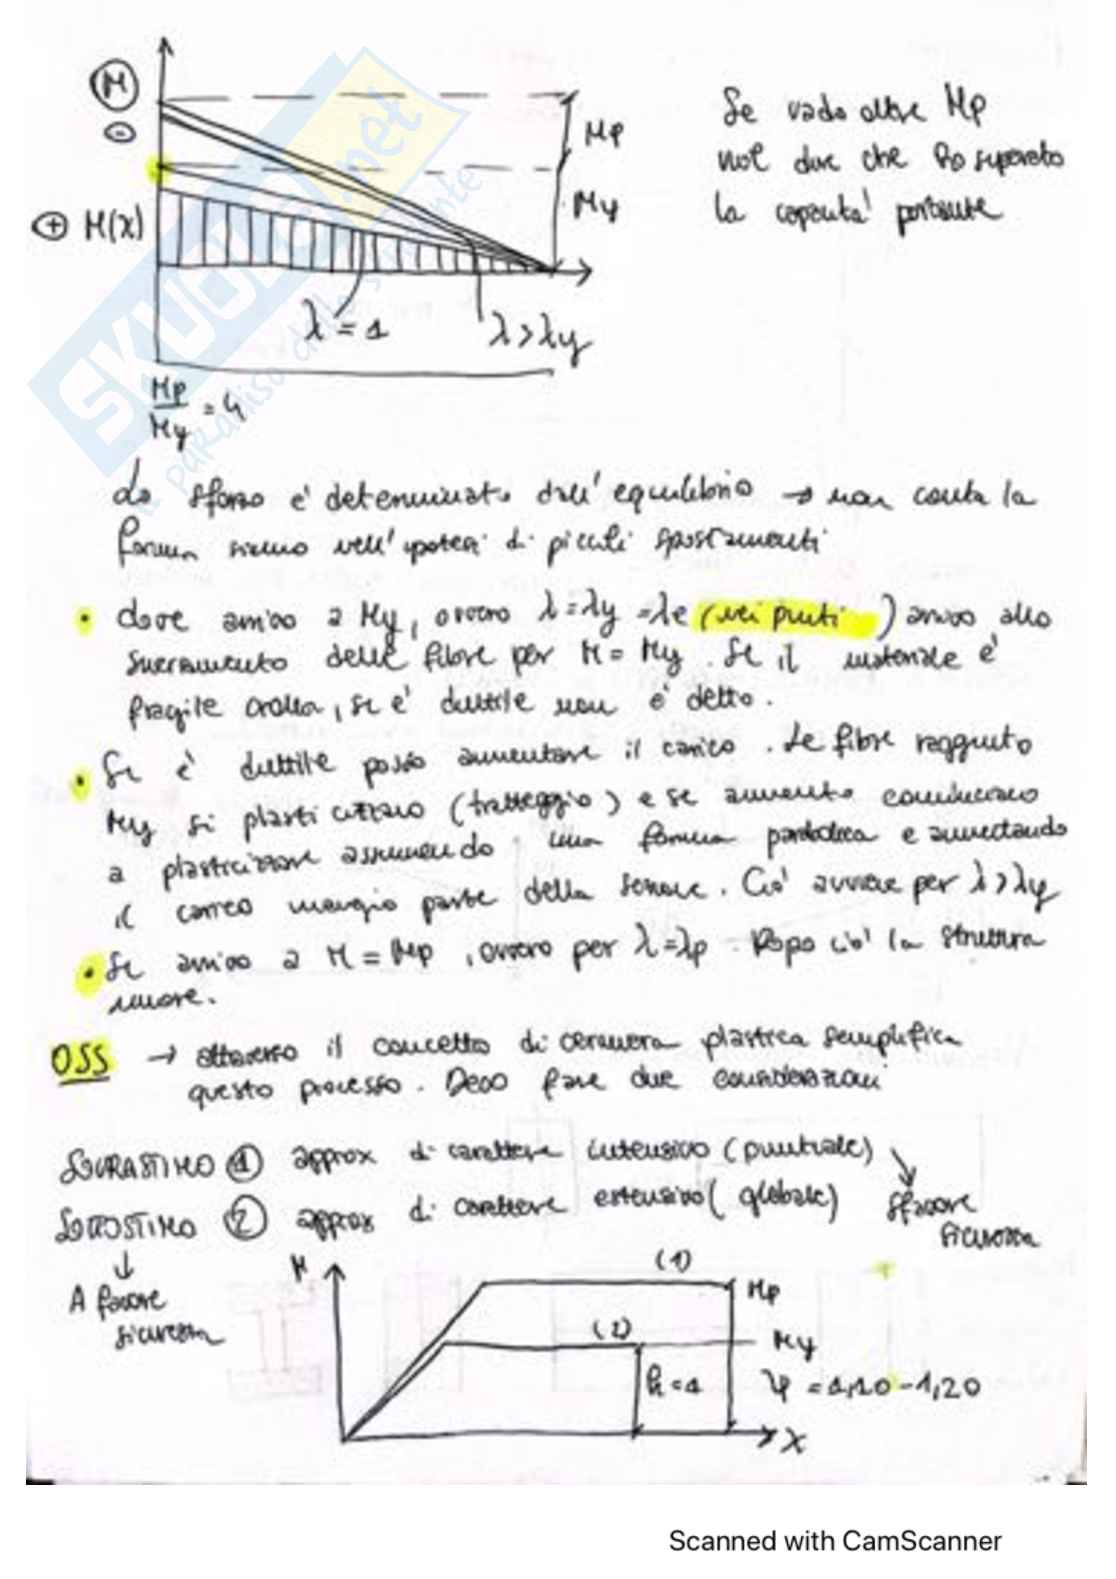 M
-
Mp
My
+ M(x)
λ = 1
λ > λy
Mp
My = 4
Se vado oltre Mp
vuol dire che ho superato
la capacità portante
SKUOLA.net
il paradiso dello studente
Lo sforzo è determinato dall'equilibrio → non conta la
forma siamo nell'ipotesi di piccoli spostamenti
• dove arrivo a My, ovvero λ = λy = λe (nei punti ) arrivo allo
snervamento delle fibre per M = My. Se il materiale è
fragile crolla, se è duttile non è detto.
• Se è duttile posso aumentare il carico. Le fibre raggiunto
My si plasticizzano (tratteggio) e se aumento cominciano
a plasticizzare assumendo una forma parabolica e aumentando
il carico maggio parte della sezione. Ciò avviene per λ > λy
• Se arrivo a M = Mp, ovvero per λ = λp. Dopo ciò la struttura
muore.
OSS → attraverso il concetto di cerniera plastica semplifica
questo processo. Devo fare due considerazioni
SOVRASTIMO 1 approx di carattere intensivo (puntuale)
SOTTOSTIMO 2 approx di carattere estensivo (globale)
sfavore
sicurezza
A favore
sicurezza
M
(1)
Mp
(2)
My
h = 1
ψ = 1,10 - 1,20
X
Scanned with CamScanner